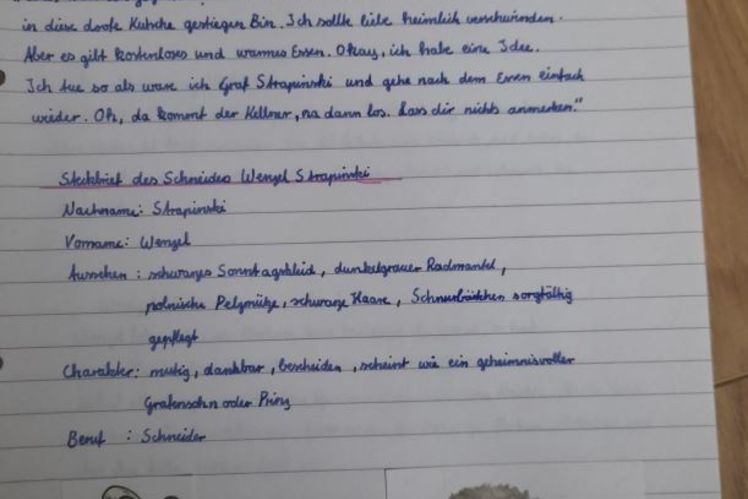 in diese doofe Kutsche gestiegen Bin. Ich sollte liebe heimlich verschwinden.
Aber es gibt kostenloses und warmes Essen. Okay, ich habe eine Idee.
Ich tue so als wäre ich Graf Strapinski und gehe nach dem Essen einfach
wieder. Oh, da kommt der Kellner, na dann los. Lass dir nichts anmerken."
Steckbrief des Schneiders Wenzel Strapinski
Nachname: Strapinski
Vorname: Wenzel
Aussehen: schwarzes Sonntagskleid, dunkelgrauer Radmantel,
polnische Pelzmütze, schwarze Haare, Schnurbärtchen sorgfältig
gepflegt
Charakter: mutig, dankbar, bescheiden, scheint wie ein geheimnisvoller
Grafensohn oder Prinz
Beruf: Schneider